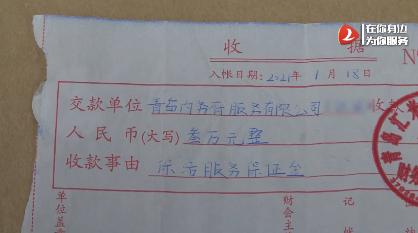 在你身边
为你服务
收 据
入帐日期：2021年 1月 18日
交款单位 青岛 服务有限公司 收款
人民币(大写) 叁万元整
收款事由 保洁服务保证金
单位盖
财会主
记
出